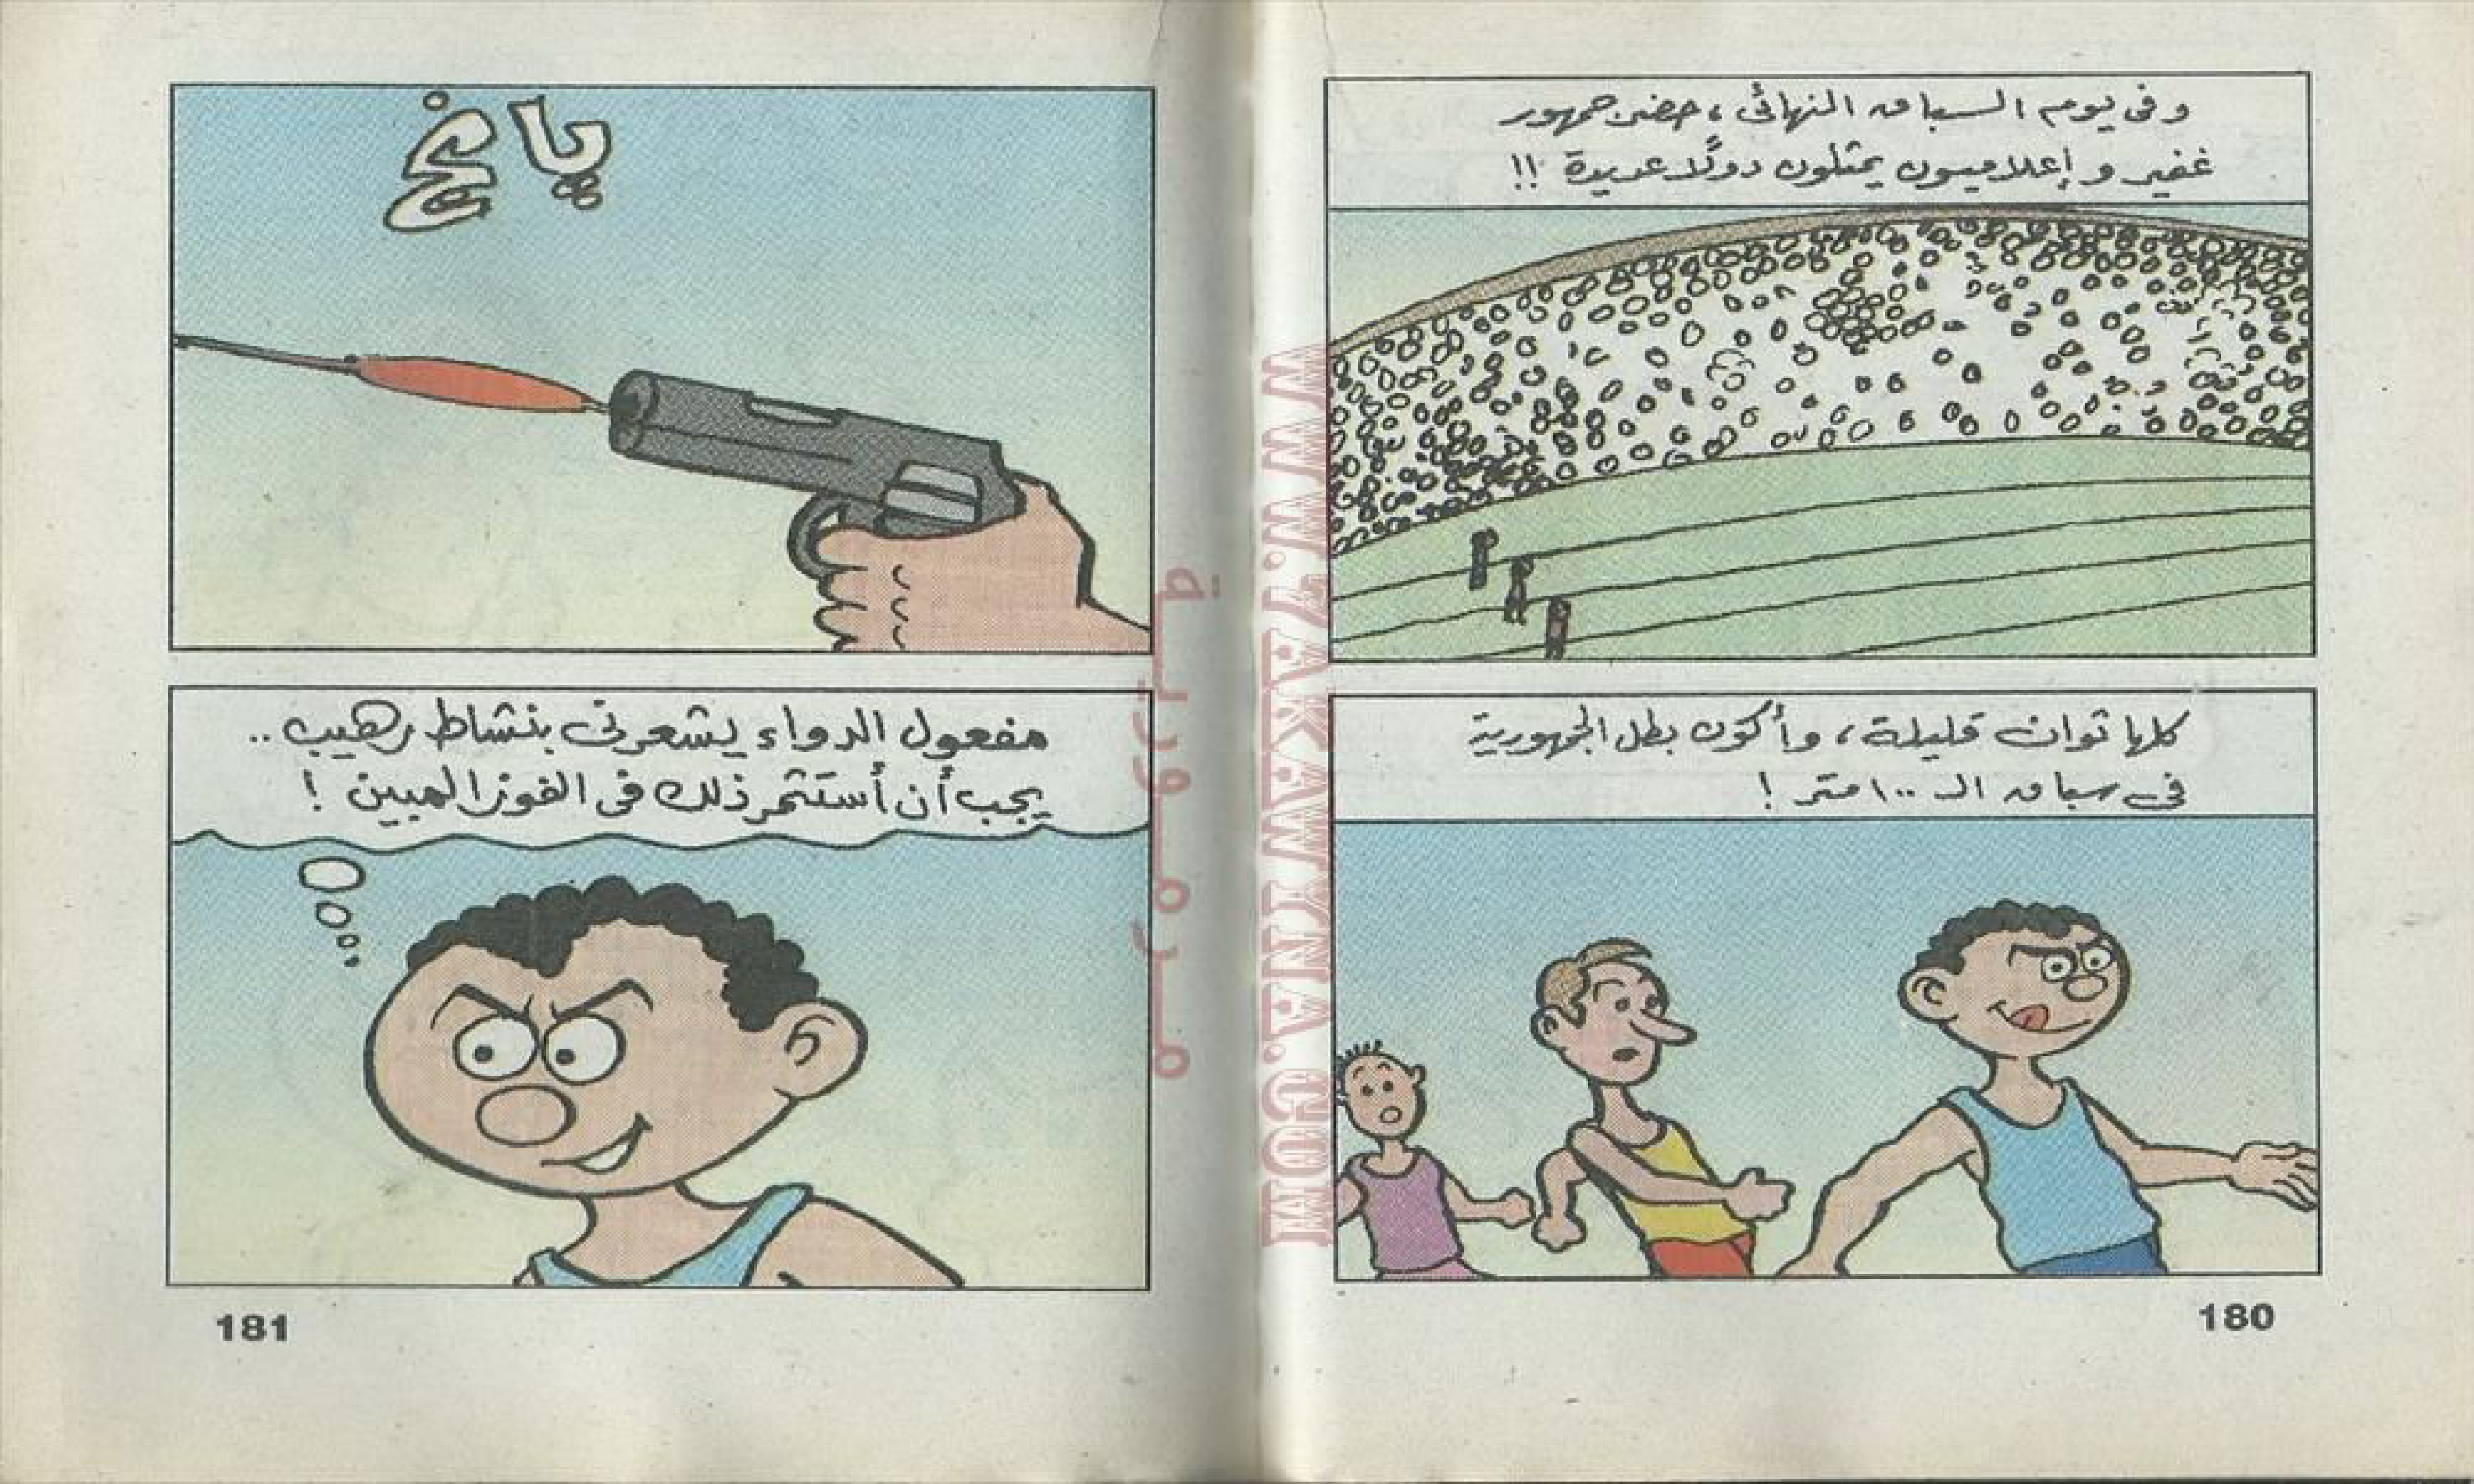 وفى يوم السباق النهائى، حضر جمهور
غفير وإعلاميون يمثلون دولًا عديدة !!
كلها ثوان قليلة، وأكون بطل الجمهورية
فى سباق الـ ١٠٠ متر !
180
پاغ
مفعول الدواء يشعرنى بنشاط رهيب..
يجب أن أستثمر ذلك فى الفوز المبين !
181
مرمورية
WWW.ARAKAWTNA.COM